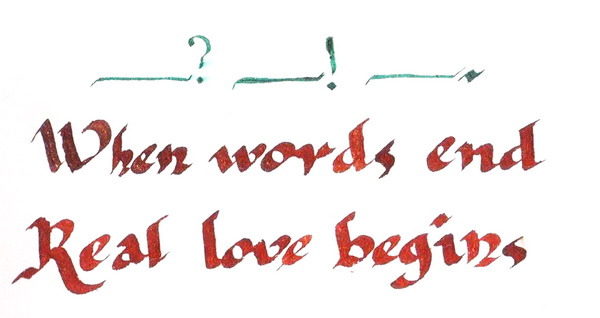 ____? ____! ____.
When words end
Real love begins